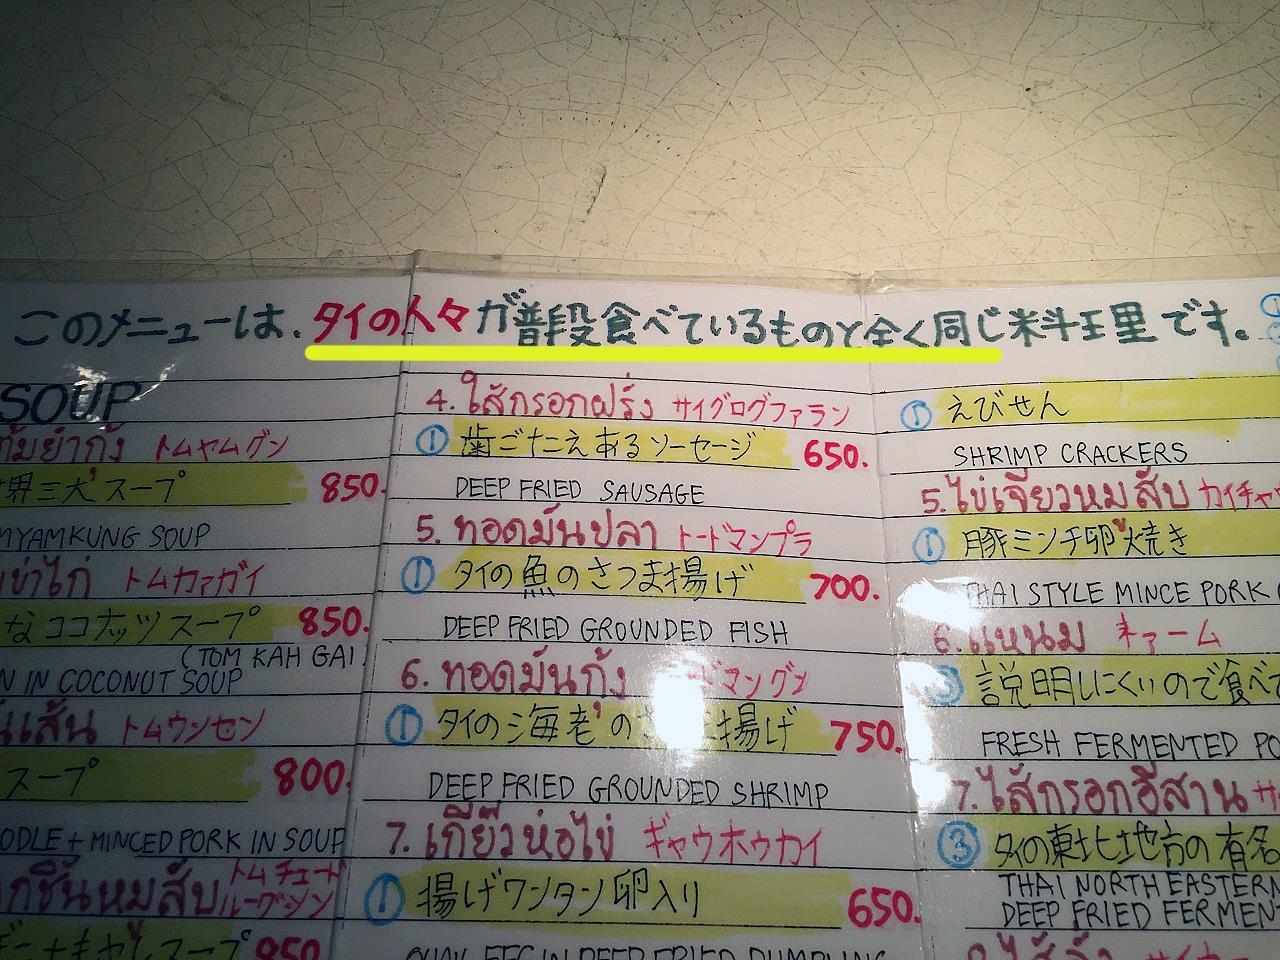 このメニューは、タイの人々が普段食べているものと全く同じ料理です。
SOUP
ต้มยำกุ้ง トムヤムグン
界三大スープ 850.
MYAMKUNG SOUP
ข่าไก่ トムカァガイ
なココナッツスープ 850.
(TOM KAH GAI
N IN COCONUT SOUP
เส้น トムウンセン
スープ 800.
OODLE + MINCED PORK IN SOUP
กชิ้นหมูสับ トムチュード
ルークシン
スープ 850
4. ใส้กรอกฝรั่ง サイグログファラン
① 歯ごたえあるソーセージ 650.
DEEP FRIED SAUSAGE
5. ทอดมันปลา トートマンプラ
① タイの魚のさつま揚げ 700.
DEEP FRIED GROUNDED FISH
6. ทอดมันกุ้ง マングン
① タイの海老のさ 揚げ 750.
DEEP FRIED GROUNDED SHRIMP
7. เกี๊ยวห่อไข่ ギャウホゥカイ
① 揚げワンタン卵入り 650.
QUAIL EGG IN DEEP FRIED DUMPLING
① えびせん
SHRIMP CRACKERS
5. ไข่เจียวหมูสับ カイチャ
① 豚ミンチ卵焼き
THAI STYLE MINCE PORK
6. แหนม ネァーム
③ 説明しにくいので食べて
FRESH FERMENTED PO
7. ไส้กรอกอีสาน サ
③ タイの東北地方の有名
THAI NORTH EASTERN
DEEP FRIED FERMEN